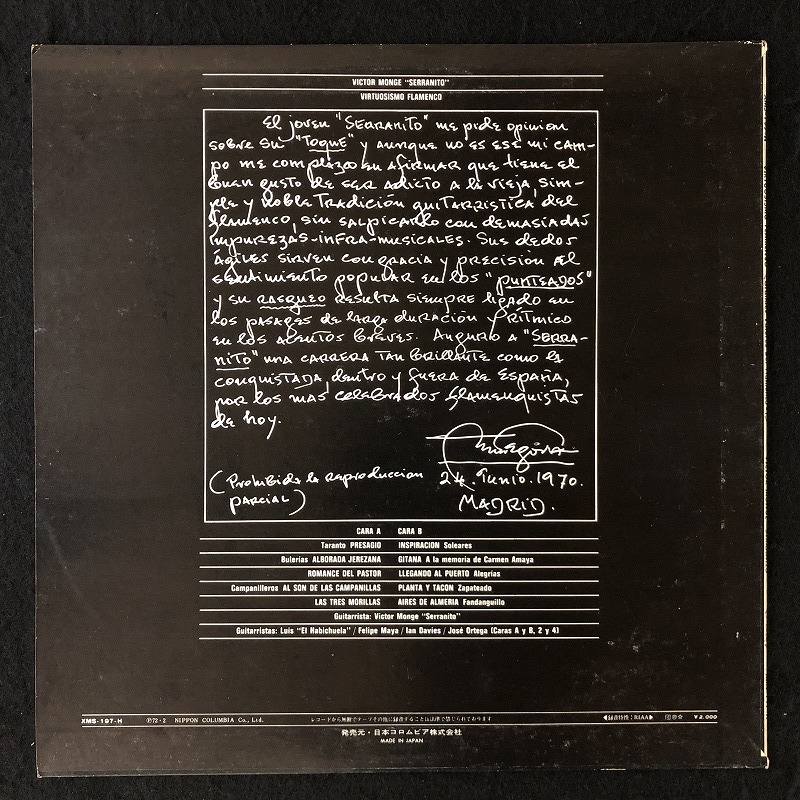 VICTOR MONGE "SERRANITO"
VIRTUOSISMO FLAMENCO
El joven "SERRANITO" me pide opinion
sobre su "TOQUE" y aunque no es ese mi cam-
po me complazco en afirmar que tiene el
buen gusto de ser adicto a la vieja, sim-
ple y noble tradición guitarristica del
flamenco, sin salpicarlo con demasiadas
impurezas-infra-musicales. Sus dedos
ágiles sirven con gracia y precisión al
sentimiento popular en los "PUNTEADOS"
y su RASGUEO resulta siempre ligado en
los pasages de larga duración y rítmico
en los acentos breves. Auguro a "SERRA-
NITO" una carrera tan brillante como la
conquistada, dentro y fuera de España,
por los mas celebrados flamenquistas
de hoy.
(Prohibida la reproduccion
parcial)
24. Junio. 1970.
MADRID.
CARA A CARA B
Taranto PRESAGIO INSPIRACION Soleares
Bulerías ALBORADA JEREZANA GITANA A la memoria de Carmen Amaya
ROMANCE DEL PASTOR LLEGANDO AL PUERTO Alegrías
Campanilleros AL SON DE LAS CAMPANILLAS PLANTA Y TACON Zapateado
LAS TRES MORILLAS AIRES DE ALMERIA Fandanguillo
Guitarrista: Víctor Monge "Serranito"
Guitarristas: Luis "El Habichuela" / Felipe Maya / Ian Davies / José Ortega (Caras A y B, 2 y 4)
XMS-197-H ℗72·2 NIPPON COLUMBIA Co., Ltd. レコードから無断でテープその他に録音することは法律で禁じられております ◀録音特性：RIAA▶ ¥2.000
発売元・日本コロムビア株式会社
MADE IN JAPAN